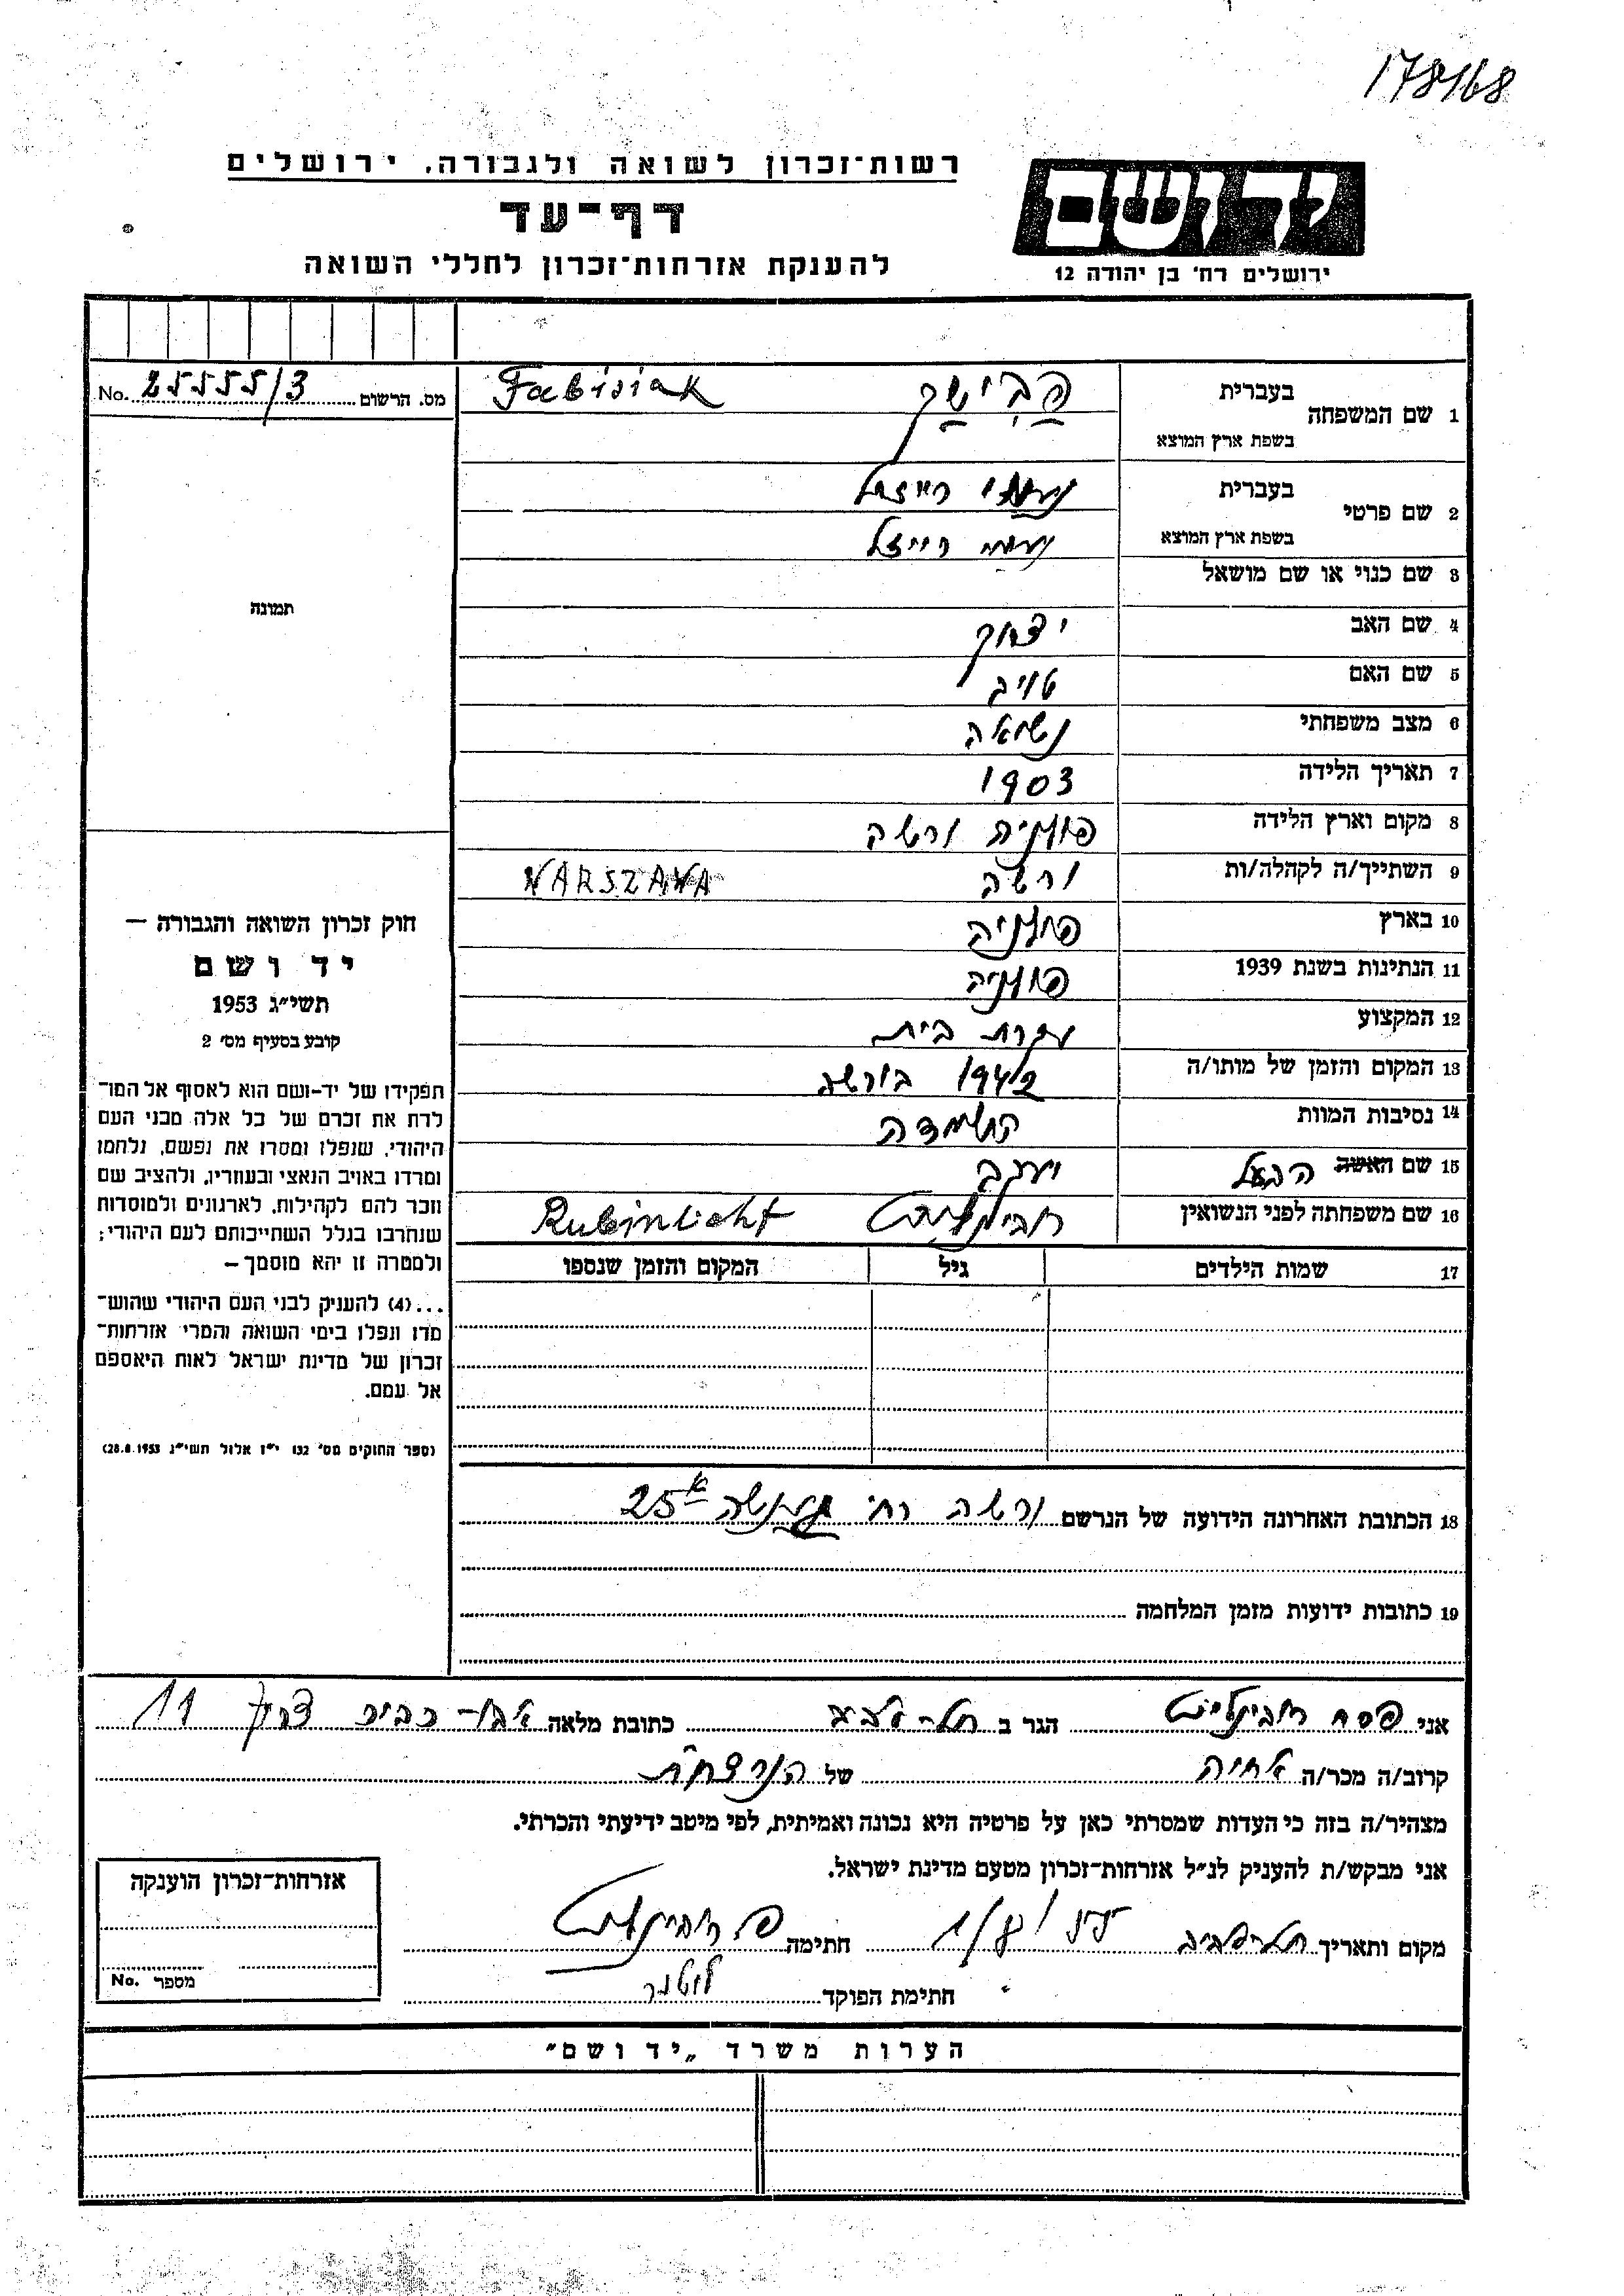 178168
רשות־זכרון לשואה ולגבורה, ירושלים
דף־עד
להענקת אזרחות־זכרון לחללי השואה
יד ושם
ירושלים רח' בן יהודה 12
מס. הרשום 25555/3 No.
1 שם המשפחה בעברית פבישק Fabisiak
בשפת ארץ המוצא
2 שם פרטי בעברית נעמי רייזל
בשפת ארץ המוצא נעמי רייזל
3 שם כנוי או שם מושאל
4 שם האב יצחק
5 שם האם טויב
6 מצב משפחתי נשואה
7 תאריך הלידה 1903
8 מקום וארץ הלידה פולניה ורשה
9 השתייך/ה לקהלה/ות ורשה WARSZAWA
10 בארץ פולניה
11 הנתינות בשנת 1939 פולניה
12 המקצוע עקרת בית
13 המקום והזמן של מותו/ה 1942 בורשה
14 נסיבות המוות השמדה
15 שם האשה הבעל יעקב
16 שם משפחתה לפני הנשואין רובינליכט Rubinlicht
17 שמות הילדים גיל המקום והזמן שנספו
18 הכתובת האחרונה הידועה של הנרשם ורשה רח' 25א
19 כתובות ידועות מזמן המלחמה
תמונה
חוק זכרון השואה והגבורה —
יד ושם
תשי״ג 1953
קובע בסעיף מס׳ 2
תפקידו של יד-ושם הוא לאסוף אל המו־
לדת את זכרם של כל אלה מבני העם
היהודי, שנפלו ומסרו את נפשם, נלחמו
ומרדו באויב הנאצי ובעוזריו, ולהציב שם
וזכר להם לקהילות, לארגונים ולמוסדות
שנחרבו בגלל השתייכותם לעם היהודי;
ולמטרה זו יהא מוסמך —
...(4) להעניק לבני העם היהודי שהוש־
מדו ונפלו בימי השואה והמרי אזרחות־
זכרון של מדינת ישראל לאות היאספם
אל עמם.
(ספר החוקים מס׳ 132 י״ז אלול תשי״ג 28.8.1953)
אני פסח רובינליכט הגר ב תל-אביב כתובת מלאה אבו-כביר דרך 11
קרוב/ה מכר/ה אחיה של הנרצחת
מצהיר/ה בזה כי העדות שמסרתי כאן על פרטיה היא נכונה ואמיתית, לפי מיטב ידיעתי והכרתי.
אני מבקש/ת להעניק לנ״ל אזרחות־זכרון מטעם מדינת ישראל.
מקום ותאריך תל-אביב חתימה פ. רובינליכט
חתימת הפוקד
אזרחות־זכרון הוענקה
מספר No.
הערות משרד „יד ושם״